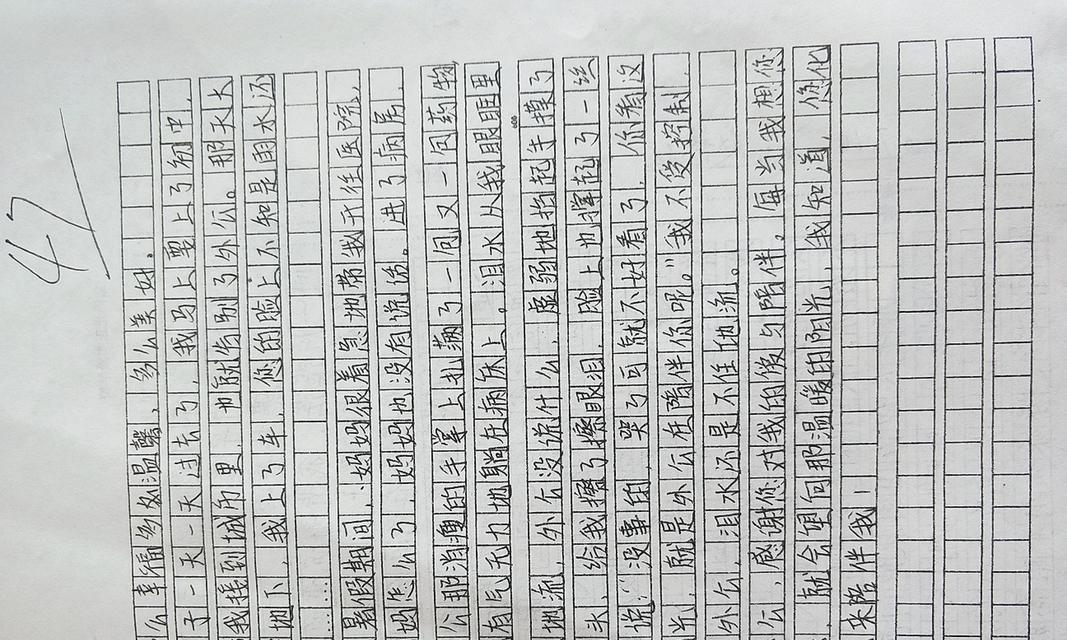 47
么幸福多么温馨,多么美好。
子一天一天过去了,我马上要上了初中,
我接到城市里,也就告别了外公。那天大
地下,我上了车,您的脸上不知是雨水还
……
暑假期间,妈妈很着急地带我干往医院,
妈怎么了,妈妈也没有说话。进了病房,
公那消瘦的手掌上扎满了一包又一包药物
有气无力地躺在病床上。泪水从我眼眶里
地流,外公没说什么,虚弱地抬起手摸了
头,给我擦了擦眼泪,脸上也挥起了一丝
说:“没事的,哭了可就不好看了,你看这
光,就是外公在陪伴你呢。”我不受控制,
外公,泪水还是不住地流。
公,感谢您对我的爱与陪伴。每当我想您
,就会望向那温暖的阳光,我知道,您化
来陪伴我!